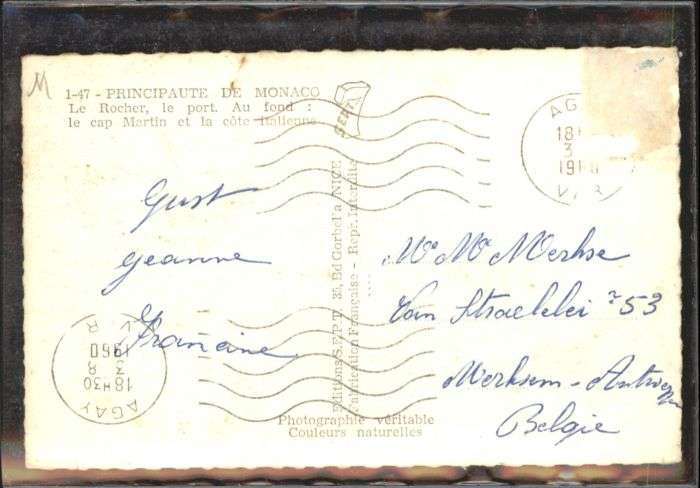 M
1-47 - PRINCIPAUTE DE MONACO
Le Rocher, le port. Au fond :
le cap Martin et la côte italienne
SEPT
AG
18
3
19
VAR
Gust
Jeanne
Francine
Editions S.E.P.T. 35, Bd Gorbella, NICE
Fabrication Française - Repr. Interdite
Van 53
Merksem - Antwerpen
Belgie
AGAY
18H30
3 8
1960
VAR
Photographie véritable
Couleurs naturelles